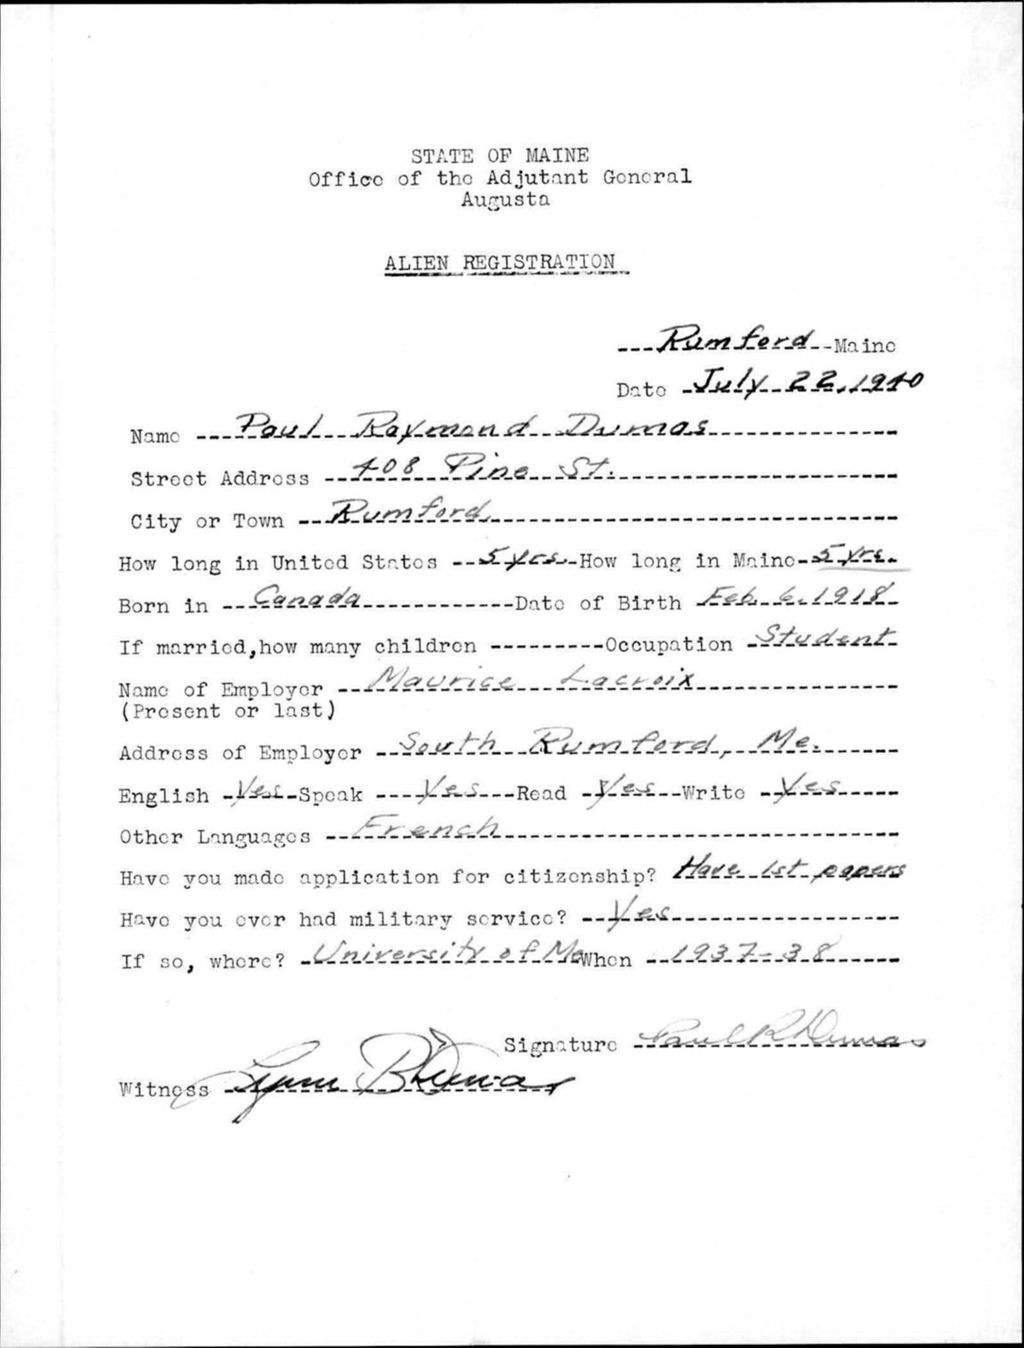 STATE OF MAINE
Office of the Adjutant General
Augusta
ALIEN REGISTRATION
Rumford Maine
Date July 22, 1940
Name Paul Raymond Dumas
Street Address 408 Pine St.
City or Town Rumford,
How long in United States 5 yrs. How long in Maine 5 yrs.
Born in Canada Date of Birth Feb. 6, 1918
If married, how many children Occupation Student
Name of Employer Maurice Lacroix
(Present or last)
Address of Employer South Rumford, Me.
English Yes Speak Yes Read Yes Write Yes
Other Languages French
Have you made application for citizenship? Have 1st papers
Have you ever had military service? Yes
If so, where? University of Me When 1937-38
Signature Paul R Dumas
Witness